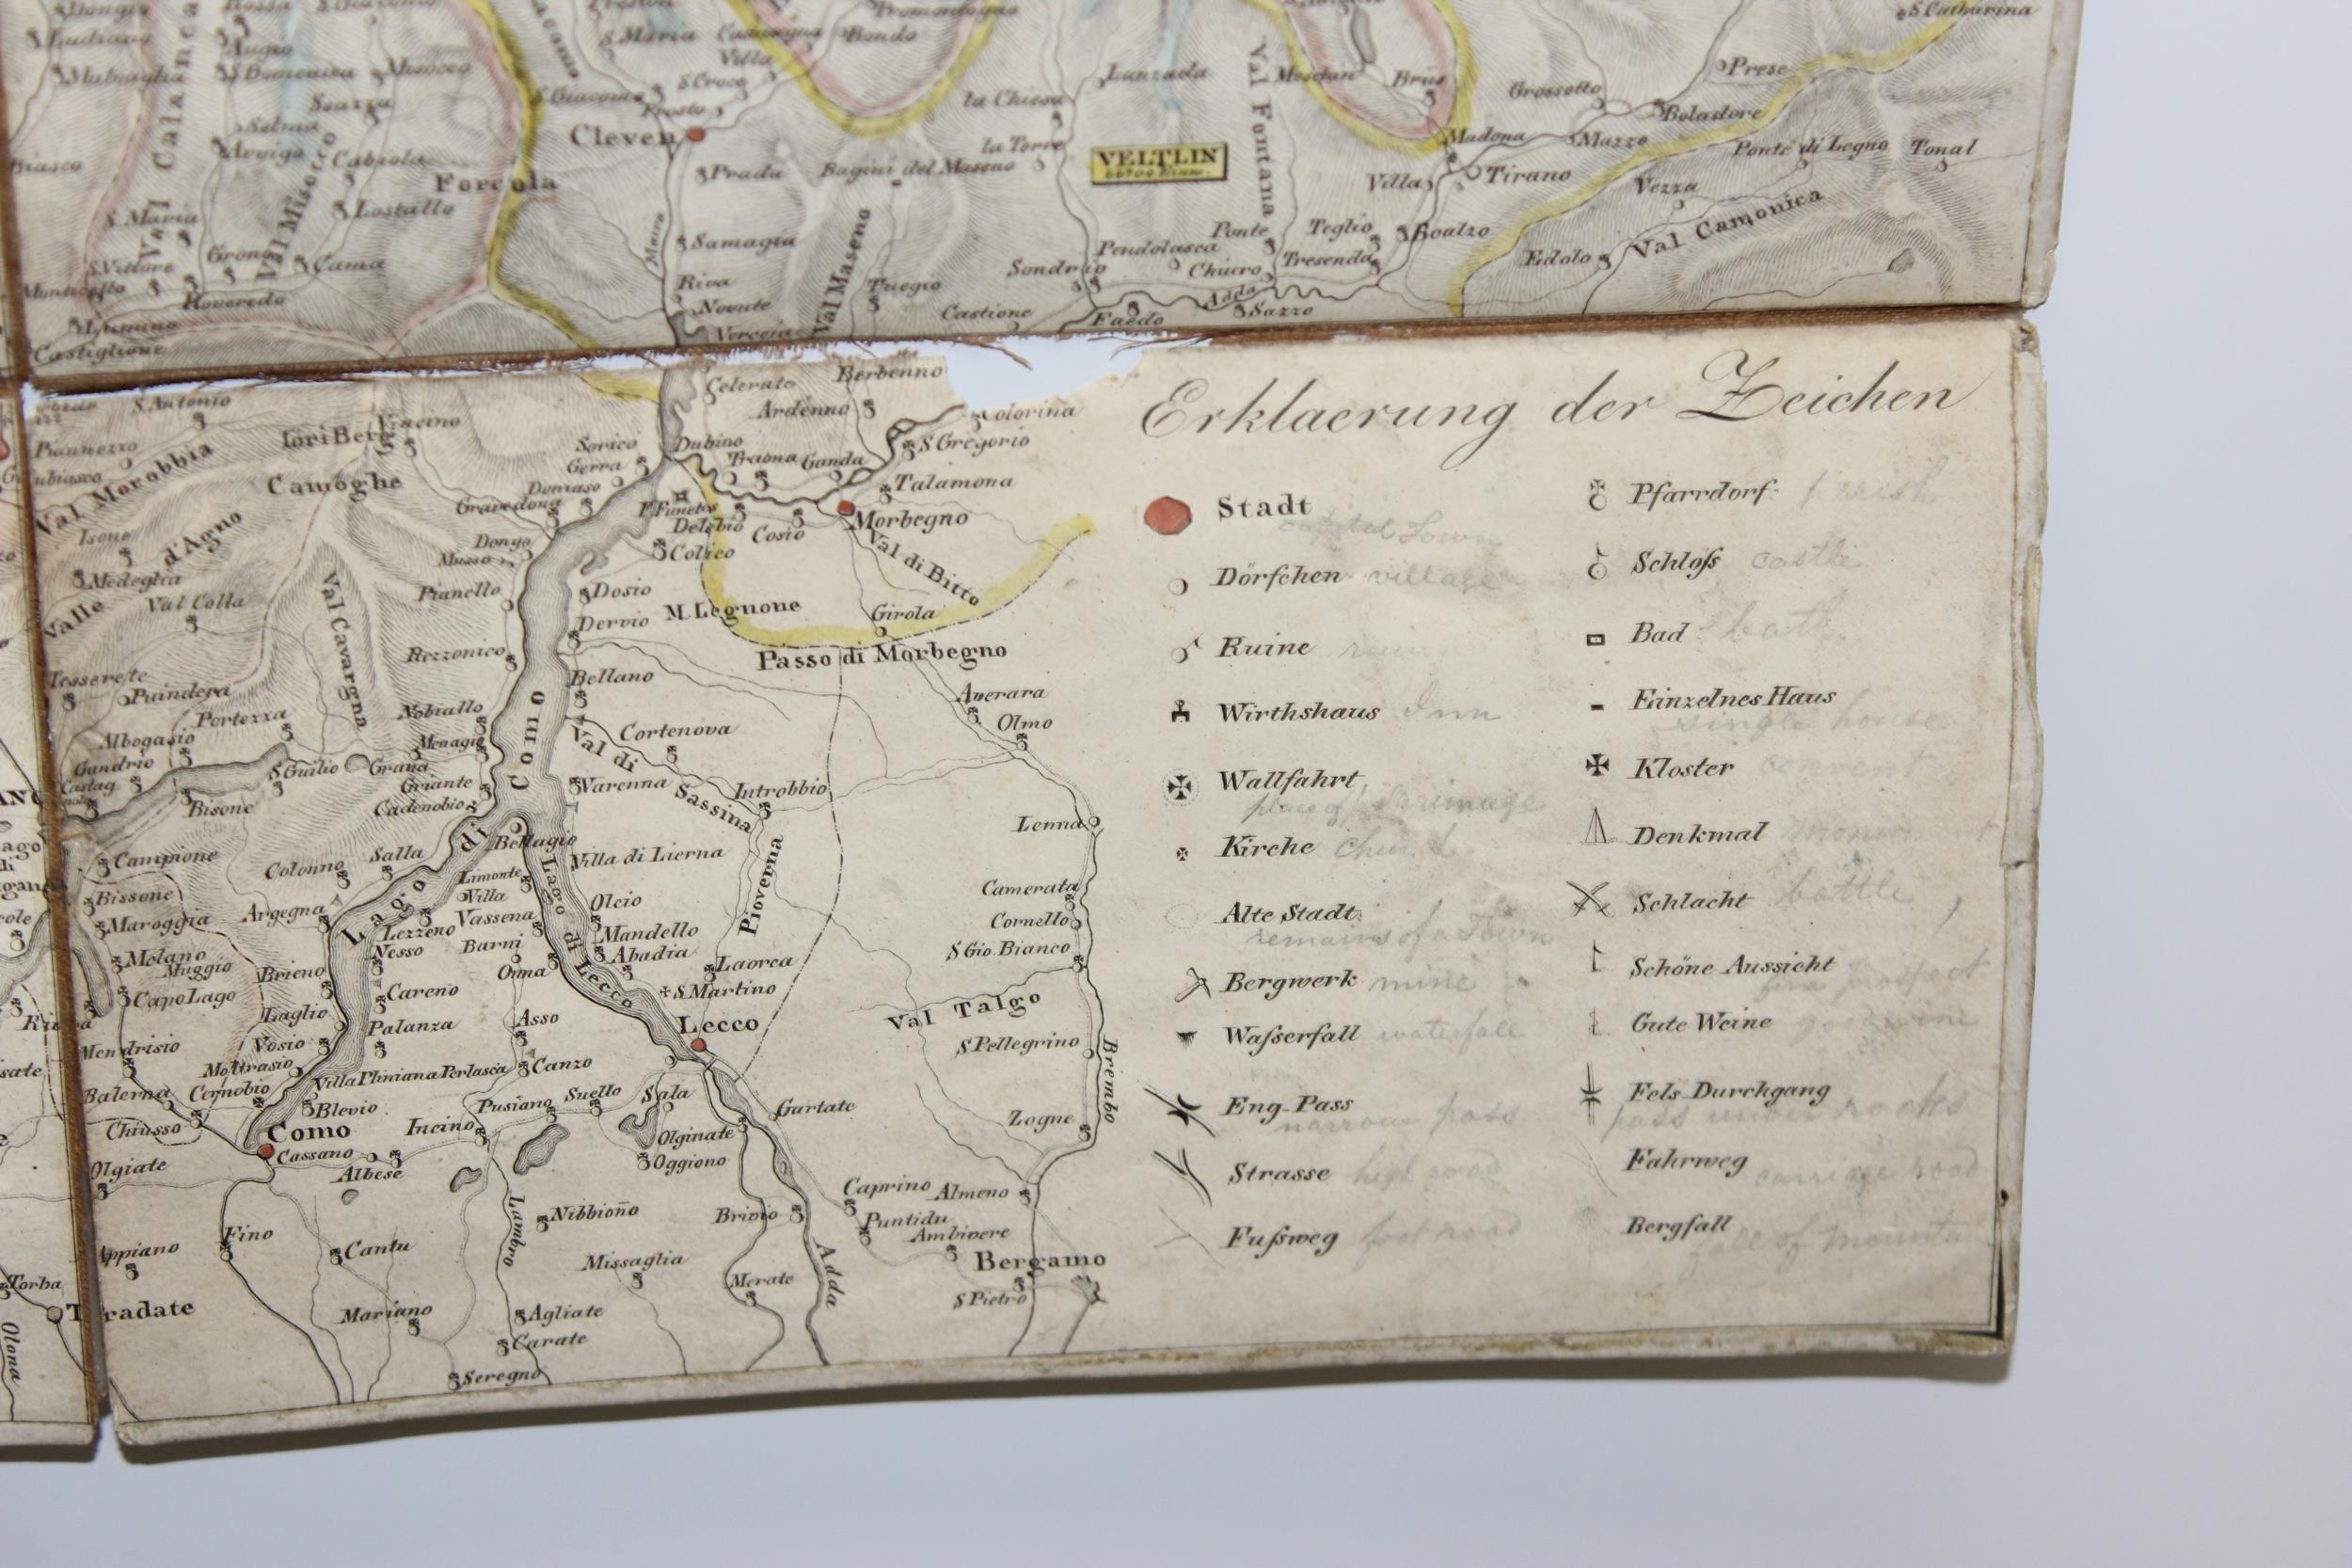 Dongio
S. Maria
Villa
Bondo
S. Catharina
Ludiano
Augio
S. Domenica
Misocco
S. Croce
Lanzada
Meschin
Brüs
Prese
Val Calanca
Soazza
S. Giacomo
Prosto
la Chiesa
Val Fontana
Grossotto
Boladore
Selma
Cleven
la Torre
VELTLIN
Madona
Mazzo
Ponte di Legno
Tonal
Biasco
Arvigo
Cabiola
Prada
Bagini del Maseno
Tirano
Forcola
Villa
Vezza
Val Misocco
Lostallo
Val Camonica
S. Maria
Samagia
Val Maseno
Pendolasca
Ponte
Teglio
Boalzo
S. Vittore
Grono
Cama
Maira
Sondrio
Chiuro
Tresenda
Edolo
Monticello
Roveredo
Riva
Novate
Verceia
Tuegio
Castione
Faedo
Adda
Sazzo
Lumino
Castiglione
S. Antonio
Celerato
Berbenno
Ardenno
Colorina
Vincino
Jori Berg
Val Morobbia
Camoghe
Sorico
Gerra
Domaso
Gravedona
Dubino
Traona
Ganda
S. Gregorio
Talamona
F. Fuentes
Delebio
Cosio
Morbegno
Isone
Valle d'Agno
Dongo
Musso
Colico
Val di Bitto
Medeglia
Val Colla
Val Cavargna
Pianello
Dosio
Dervio
M. Legnone
Girola
Rezzonico
Passo di Morbegno
Tesserete
Puindera
Bellano
Averara
Olmo
Portezza
Nobiallo
Cortenova
Albogasio
Menagio
Val di Sassina
Gandrio
Castag
S. Guilio
Grana
Griante
Varenna
Introbbio
Bisone
Cadenobio
Lenna
Lago di Como
Bellagio
Campione
Colonno
Salla
Villa di Lierna
Limonte
Villa
Bissone
Argegna
Lago di Lecco
Olcio
Piovena
Camerata
Maroggia
Lezzeno
Vassena
Mandello
Cornello
Nesso
Barni
Abadia
S. Gio. Bianco
Melano
Muggio
Brieno
Onna
Laorca
Capo Lago
Careno
S. Martino
Val Talgo
Laglio
Palanza
Asso
Lecco
Mendrisio
Vosio
S. Pellegrino
Moltrasio
Villa Pliniana
Perlasca
Canzo
Brembo
Balerna
Cernobio
Blevio
Pusiano
Suello
Sala
Gartate
Zogne
Chiusso
Como
Incino
Olginate
Cassano
Oggiono
Olgiate
Albese
Lambro
Caprino
Almeno
Nibbiono
Brivio
Puntidu
Ambivere
Fino
Appiano
Cantu
Missaglia
Adda
Bergamo
Merate
S. Pietro
Torba
Tradate
Mariano
Agliate
Carate
Seregno
Olona
Erklaerung der Zeichen
Stadt
capital Town
Dörfchen village
Ruine ruins
Wirthshaus Inn
Wallfahrt
place of pilgrimage
Kirche Church
Alte Stadt
remains of a Town
Bergwerk mine
Waſserfall waterfall
Eng-Pass
narrow pass
Strasse high road
Fuſsweg foot road
Pfarrdorf parish
Schloſs castle
Bad bath
Einzelnes Haus
single house
Kloster convent
Denkmal
Schlacht battle
Schöne Aussicht
fine prospect
Gute Weine good wine
Fels-Durchgang
pass under rocks
Fahrweg carriage road
Bergfall